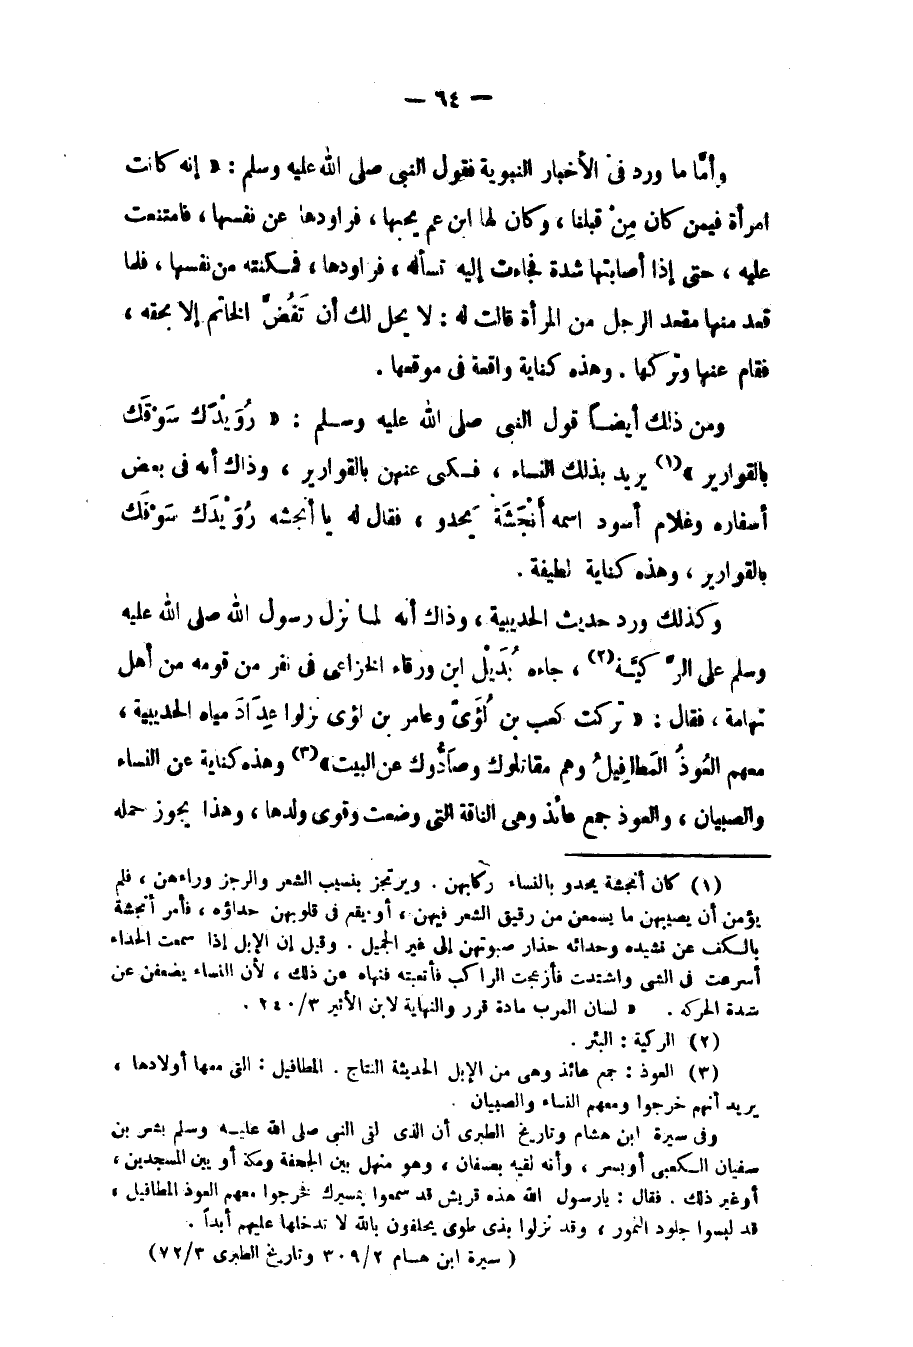 — ٦٤ —
وأمّا ما ورد فى الأخبار النبوية فقول النبى صلى الله عليه وسلم : « إنه كانت
امرأة فيمن كان مِنْ قبلنا ، وكان لها ابن عم يحبها ، فراودها عن نفسها ، فامتنعت
عليه ، حتى إذا أصابتها شدة فجاءت إليه تسأله ، فراودها ، فمكنته من نفسها ، فلما
قعد منها مقعد الرجل من المرأة قالت له : لا يحل لك أن تَفُضَّ الخاتم إلا بحقه ،
فقام عنها وتركها . وهذه كناية واقعة فى موقعها .
ومن ذلك أيضاً قول النبى صلى الله عليه وسلم : « رُوَيْدَكَ سَوْقَكَ
بالقوارير »(١) يريد بذلك النساء ، فكنى عنهن بالقوارير ، وذاك أنه فى بعض
أسفاره وغلام أسود اسمه أَنْجَشَة يَحدو ، فقال له يا أنجشه رُوَيْدَكَ سَوْقَكَ
بالقوارير ، وهذه كناية لطيفة .
وكذلك ورد حديث الحديبية ، وذاك أنه لما نزل رسول الله صلى الله عليه
وسلم على الرَّكيَّة(٢) ، جاءه بُدَيْل ابن ورقاء الخزاعى فى نفر من قومه من أهل
تهامة ، فقال : « تركت كعب بن لُؤَىّ وعامر بن لؤى نزلوا عِدَادَ مياه الحديبية ،
معهم العُوذُ المَطافِيلُ وهم مقاتلوك وصَادُّوك عن البيت»(٣) وهذه كناية عن النساء
والصبيان ، والعوذ جمع عائذ وهى الناقة التى وضعت وقوى ولدها ، وهذا يجوز حمله
(١) كان أنجشة يحدو بالنساء ركابهن . ويرتجز بنسيب الشعر والرجز وراءهن ، فلم
يؤمن أن يصيبهن ما يسمعن من رقيق الشعر فيهن ، أو يقع فى قلوبهن حداؤه ، فأمر أنجشة
بالكف عن نشيده وحدائه حذار صبوتهن إلى غير الجميل . وقيل إن الإبل إذا سمعت الحداء
أسرعت فى المشى واشتدت فأزعجت الراكب فأتعبته فنهاه عن ذلك ، لأن النساء يضعفن عن
شدة الحركه . « لسان العرب مادة قرر والنهاية لابن الأثير ٢٤٠/٣ .
(٢) الركية : البئر .
(٣) العوذ : جمع عائذ وهى من الإبل الحديثة النتاج . المطافيل : التى معها أولادها ،
يريد أنهم خرجوا ومعهم النساء والصبيان .
وفى سيرة ابن هشام وتاريخ الطبرى أن الذى لقى النبى صلى الله عليه وسلم بشر بن
سفيان الكعبى أو بسر ، وأنه لقيه بعسفان ، وهو منهل بين الجحفة ومكة أو بين المسجدين ،
أو غير ذلك . فقال : يارسول الله هذه قريش قد سمعوا بمسيرك فخرجوا معهم العوذ المطافيل ،
قد لبسوا جلود النمور ، وقد نزلوا بذى طوى يحلفون بالله لا تدخلها عليهم أبداً .
( سيرة ابن هسام ٣٠٩/٢ وتاريخ الطبرى ٧٢/٣)